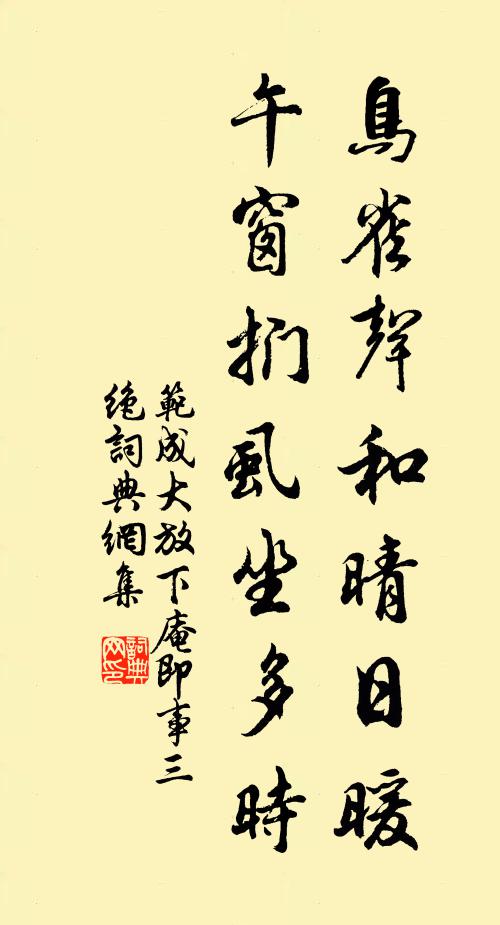 鳥雀聲和晴日暖
午窗捫虱坐多時
範成大放下庵即事三
絕詞典網集
詞典
网印